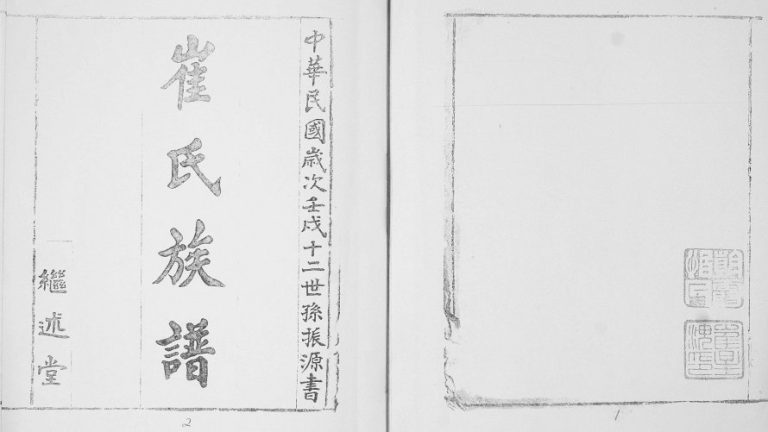 中華民國歲次壬戌十二世孫振源書
崔氏族譜
繼述堂
2
1